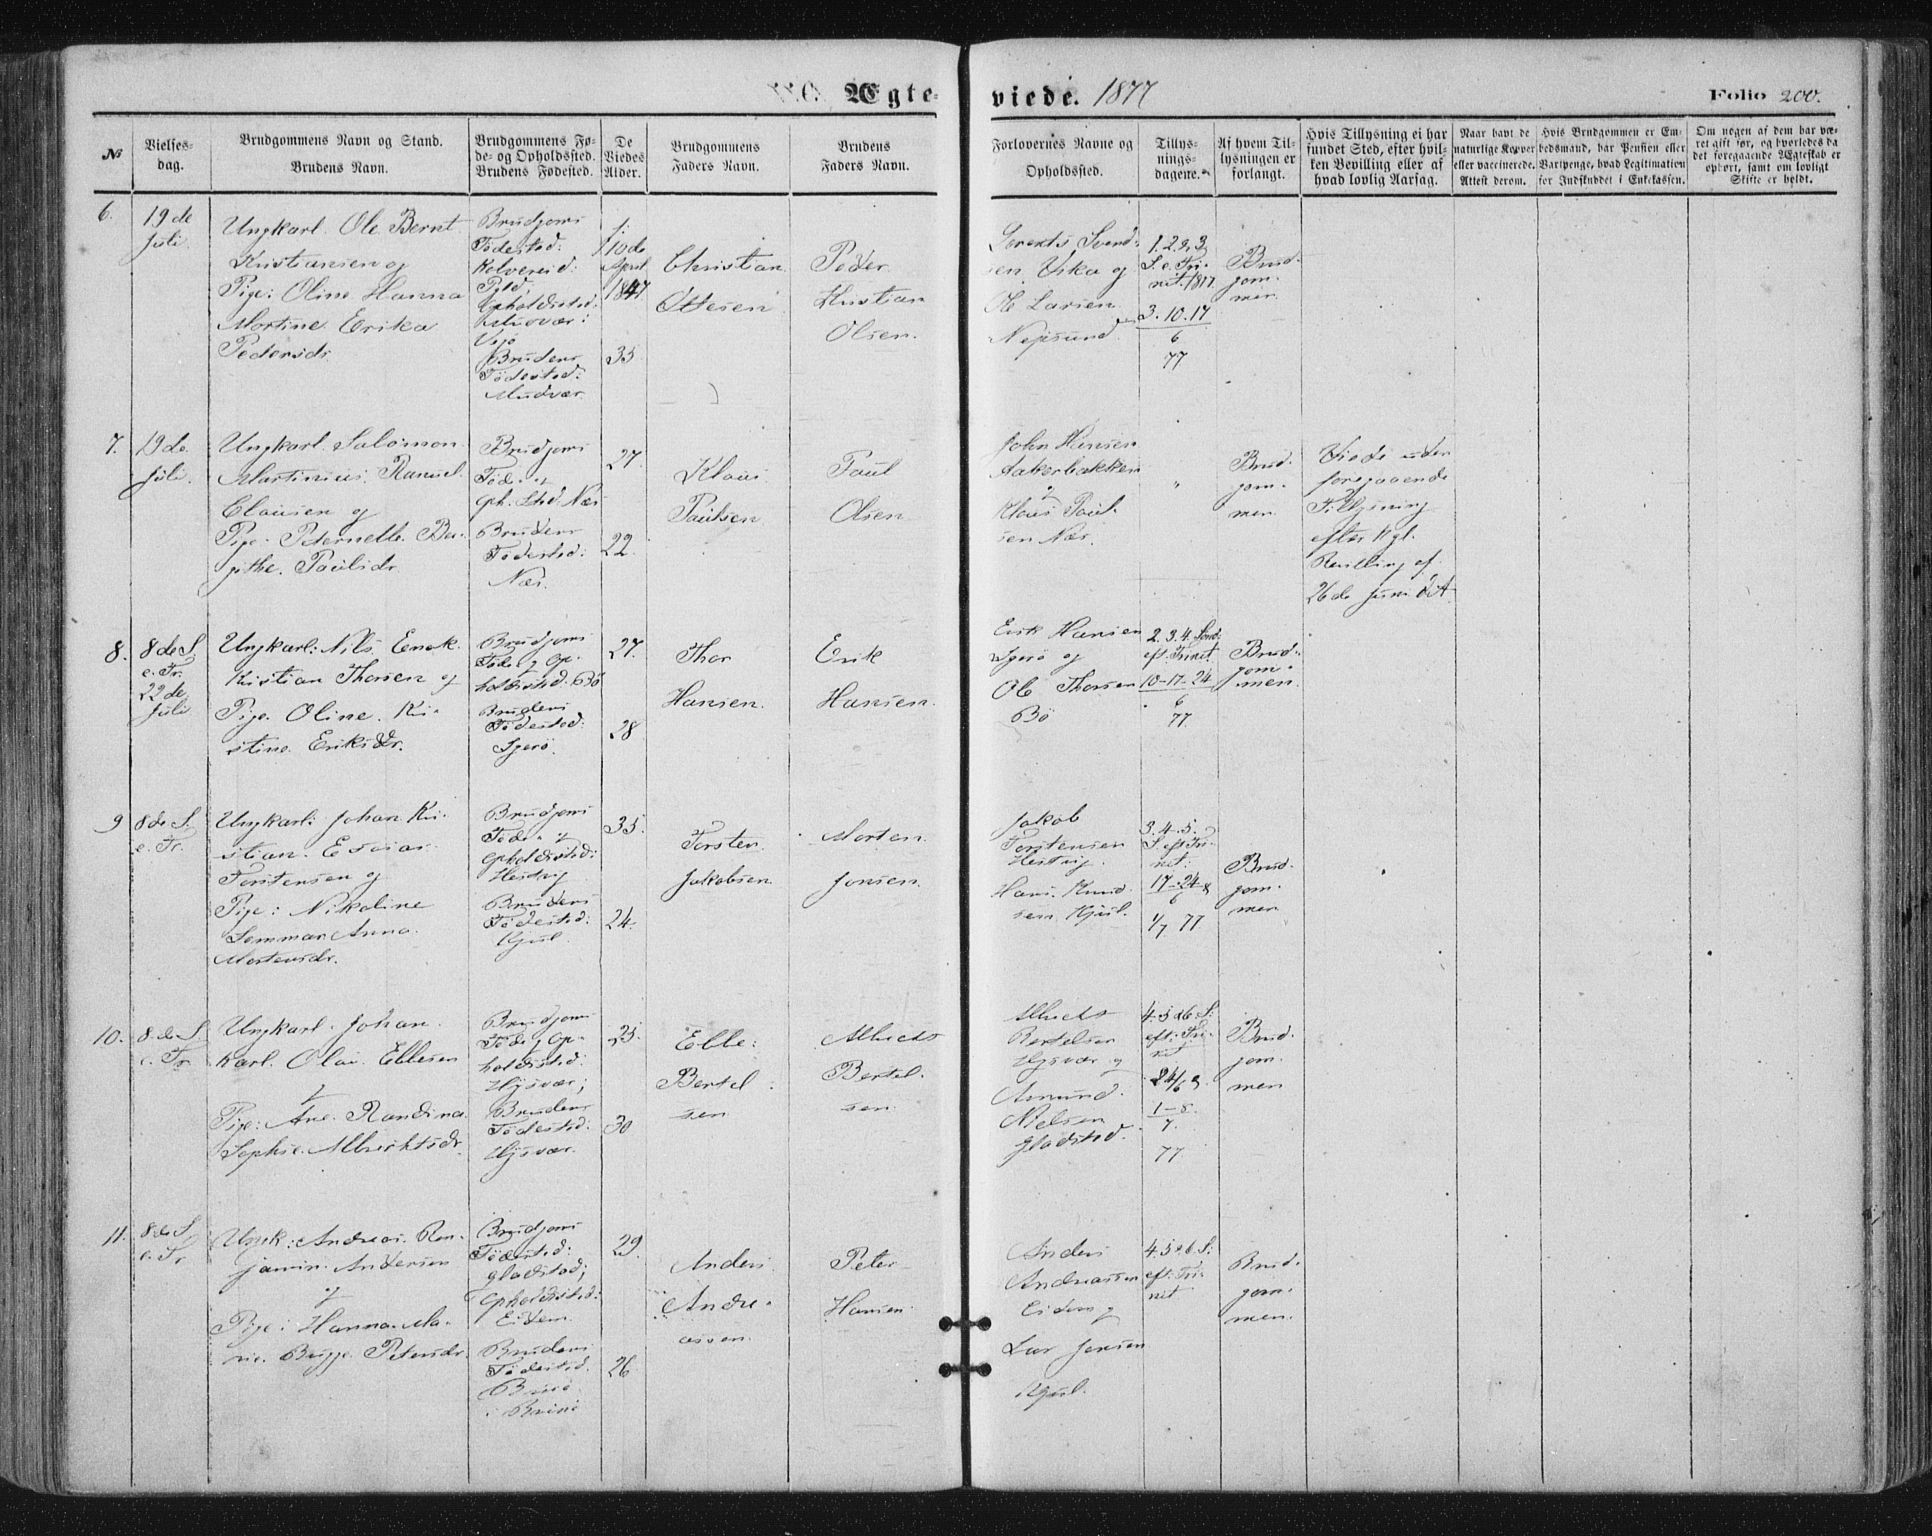 Ægte-
viede. 1877
Folio 200.
№
Vielses-
dag.
Brudgommens Navn og Stand.
Brudens Navn.
Brudgommens Fø-
de- og Opholdssted.
Brudens Fødested.
De
Viedes
Alder.
Brudgommens
Faders Navn.
Brudens
Faders Navn.
Forlovernes Navne og
Opholdssted.
Tillys-
nings-
dagene.
Af hvem Til-
lysningen er
forlangt.
Hvis Tillysning ei har
fundet Sted, efter hvil-
ken Bevilling eller af
hvad lovlig Aarsag.
Naar havt de
naturlige Kopper
eller vaccinerede.
Attest derom.
Hvis Brudgommen er Em-
bedsmand, har Pension eller
Vartpenge, hvad Legitimation
for Indskuddet i Enkekassen.
Om nogen af dem har væ-
ret gift før, og hvorledes da
det foregaaende Ægteskab er
ophørt, samt om lovligt
Skifte er holdt.
6.
19de
Juli
Ungkarl. Ole Bernt
Kristiansen og
Pige: Oline Hanna
Mortine Erika
Pedersdr.
Brudgoms
Fødested:
Kolvereid
Pgld,
Opholdssted:
Brudens
Fødested:
Mudvær
10de
April
1847
35
Christian
Ottesen
Peder
Kristian
Olsen.
Lorents Svend-
sen. og
Ole Larsen
1. 2. & 3
S. e. Tri-
nit. 1877
3. 10. 17
6
77
Brud-
gom-
men
7.
19de
Juli
Ungkarl Salomon
Martinius
Clausen og
Pige. Peternelle Be-
githe. Paulsdr.
Brudgoms
Føde- og
Oph. Sted Næs
Brudens
Fødested:
Næs.
27
22
Klaus
Paulsen
Paul
Olsen
John Hansen
Aakerbakken
og
Klaus Paul-
sen Næs.
"
Brud-
gom-
men
Viede uden
foregaaende
Tillysning
efter Kgl.
Bevilling af
26de Juni d. A
8.
8de S.
e. Tr.
22de
Juli
Ungkarl: Nils Enok
Kristian Thorsen og
Pige. Oline. Kri-
stine Eriksdr.
Brudgoms
Føde og Op-
holdssted. Bø
Brudens
Fødested:
27
28
Thor
Hansen.
Erik
Hansen.
Erik Hansen
og
Ole Thorsen
Bø
2. 3. 4. Sønd:
eft. Trinit.
10-17-24
6
77
Brud-
gom-
men.
9
8de S.
e. Tr.
Ungkarl: Johan Kri-
stian. Esaias
Torstensen og
Pige: Nikoline
Anna
Mortensdr.
Brudgoms
Føde- og
Opholdssted:
Brudens
Fødested:
Kjul.
35
24
Torsten
Jakobsen
Morten
Jonsen.
Jakob
Torstensen
Hans. Knud-
sen Kjul.
3. 4. 5.
S. eft Tri-
nit:
17-24 &
6
1/7 77
Brud-
gom-
men
10.
8de S.
e. Tr
Ungkarl. Johan
Karl. Olai Ebbesen
og
Pige: Ane. Randina
Sophie. Albrichtsdr.
Brudgoms
Føde og Op-
holdssted.
Hysvær,
Brudens
Fødested:
Hysvær.
25
30
Ebbe:
Bertel-
sen
Albricts
Bertel-
sen
Albricts
Bertelsen
Hysvær og
Asmund.
Nielsen
Gladstad.
4. 5 & 6 S:
eft: Tri-
nit
24/6 &
1-8.
7.
77
Brud-
gom-
men
11.
8de S.
e. Tr
Ungk: Andreas. Ben-
jamin Andersen
og
Pige: Hanna Ma-
rie. Petersdr
Brudgoms
Fødested:
Gladstad;
Opholdssted:
Eidem
Brudens
Fødested.
29
26
Anders
Andre-
assen
Peter
Hansen
Anders
Andreassen
Eidem og
Lars Jensen
Kjul.
4. 5 & 6 S:
eft: Tri-
nit
Brud-
gom-
men.